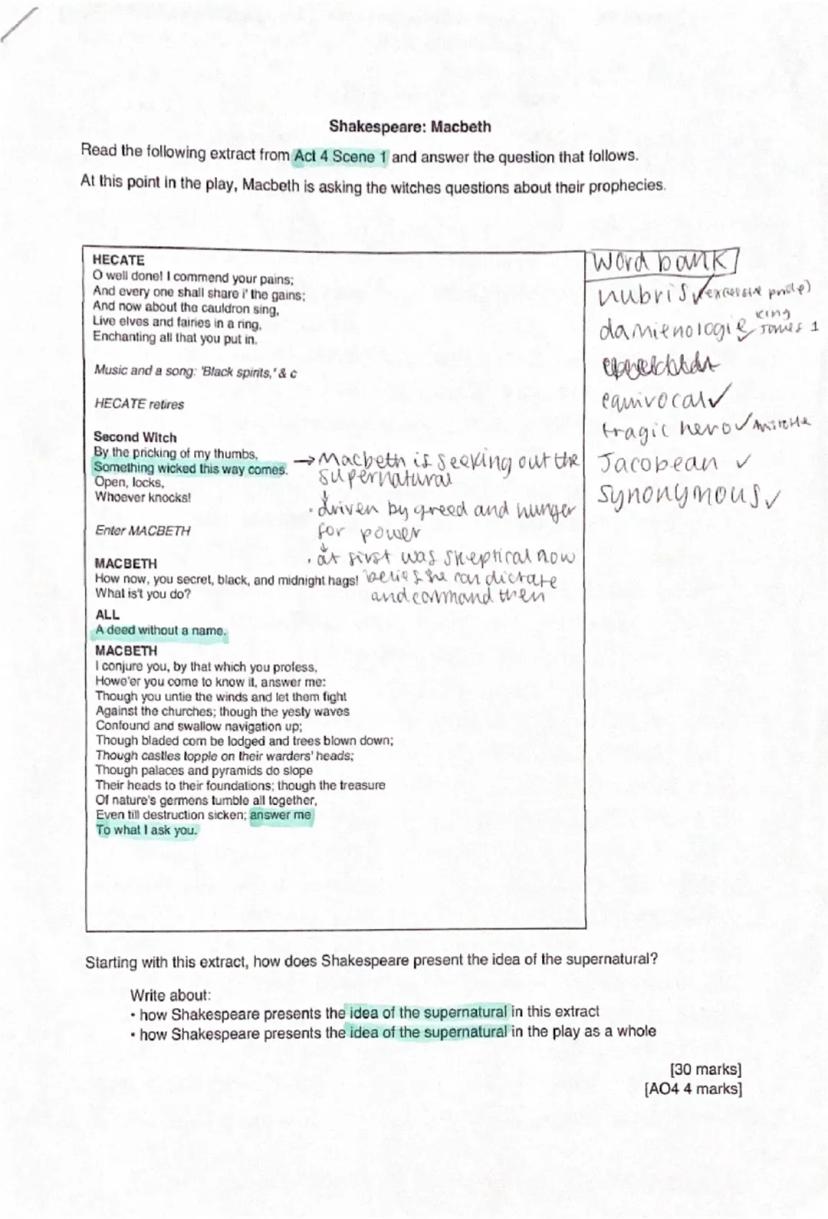 Shakespeare: Macbeth
Read the following extract from Act 4 Scene 1 and answer the question that follows.
At this point in the play, Macbeth is asking the witches questions about their prophecies.
HECATE
O well done! I commend your pains;
And every one shall share i' the gains;
And now about the cauldron sing,
Live elves and fairies in a ring,
Enchanting all that you put in.
Music and a song: 'Black spirits,' & c
HECATE retires
Second Witch
By the pricking of my thumbs,
Something wicked this way comes.
Open, locks,
Whoever knocks!
Enter MACBETH
MACBETH
How now, you secret, black, and midnight hags!
What is't you do?
ALL
A deed without a name.
MACBETH
I conjure you, by that which you profess,
Howe'er you come to know it, answer me:
Though you untie the winds and let them fight
Against the churches; though the yesty waves
Confound and swallow navigation up;
Though bladed corn be lodged and trees blown down;
Though castles topple on their warders' heads;
Though palaces and pyramids do slope
Their heads to their foundations; though the treasure
Of nature's germens tumble all together,
Even till destruction sicken; answer me
To what I ask you.
→ Macbeth is seeking out the
supernatural
↓
· driven by greed and hunger
for power
↓
· at first was skeptical now
he can dictate
and command then
word bank
hubris ✓ (excessive pride)
damienologie ✓ king James 1
equivocal ✓
tragic hero ✓
Jacobean ✓
synonymous ✓
Starting with this extract, how does Shakespeare present the idea of the supernatural?
Write about:
• how Shakespeare presents the idea of the supernatural in this extract
• how Shakespeare presents the idea of the supernatural in the play as a whole
[30 marks]
[AO4 4 marks]